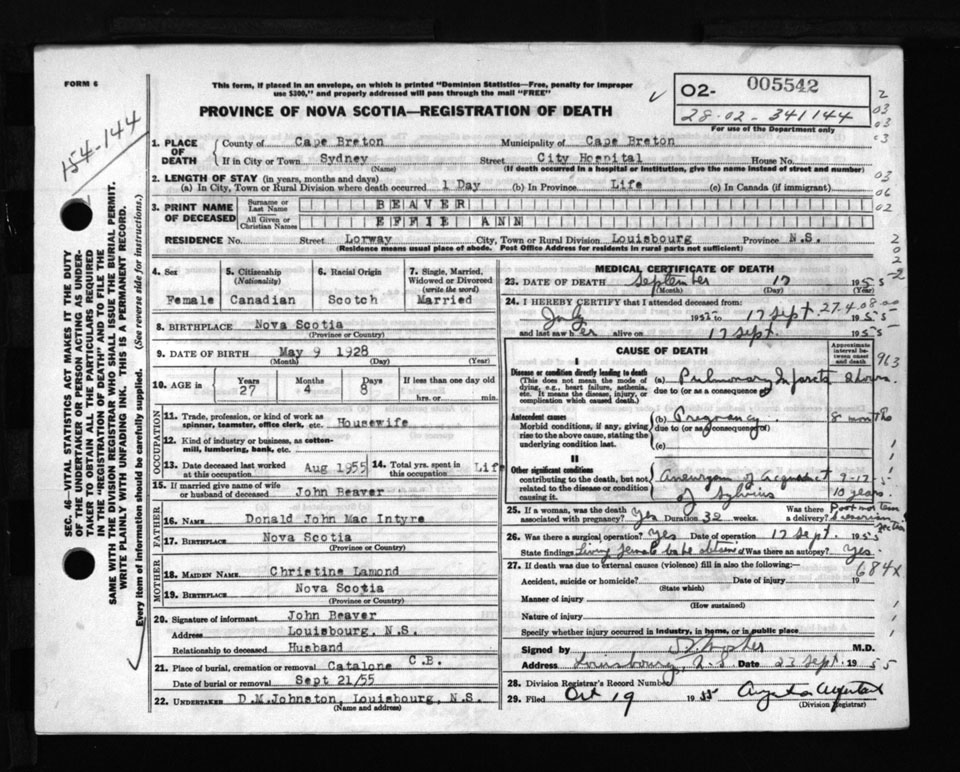 FORM 6
This form, if placed in an envelope, on which is printed "Dominion Statistics—Free, penalty for improper
use $300," and properly addressed will pass through the mail "FREE"
PROVINCE OF NOVA SCOTIA—REGISTRATION OF DEATH
02- 005542
28-02-341144
For use of the Department only
154-144
SEC. 46—VITAL STATISTICS ACT MAKES IT THE DUTY
OF THE UNDERTAKER OR PERSON ACTING AS UNDER-
TAKER TO OBTAIN ALL THE PARTICULARS REQUIRED
IN THE "REGISTRATION OF DEATH" AND TO FILE THE
SAME WITH THE DIVISION REGISTRAR WHO SHALL ISSUE THE BURIAL PERMIT.
WRITE PLAINLY WITH UNFADING INK. THIS IS A PERMANENT RECORD.
Every item of information should be carefully supplied. (See reverse side for instructions.)
1. PLACE OF DEATH
County of Cape Breton Municipality of Cape Breton
If in City or Town Sydney Street City Hospital House No.
(Name) (If death occurred in a hospital or institution, give the name instead of street and number)
2. LENGTH OF STAY (in years, months and days)
(a) In City, Town or Rural Division where death occurred 1 Day (b) In Province Life (c) In Canada (if immigrant)
3. PRINT NAME OF DECEASED
Surname or Last Name BEAVER
All Given or Christian Names EFFIE ANN
RESIDENCE No. Street Lorway City, Town or Rural Division Louisbourg Province N.S.
(Residence means usual place of abode. Post Office Address for residents in rural parts not sufficient)
4. Sex Female
5. Citizenship (Nationality) Canadian
6. Racial Origin Scotch
7. Single, Married, Widowed or Divorced (write the word) Married
8. BIRTHPLACE Nova Scotia
(Province or Country)
9. DATE OF BIRTH May 9 1928
(Month) (Day) (Year)
10. AGE in Years 27 Months 4 Days 8 If less than one day
hrs. or min.
OCCUPATION
11. Trade, profession, or kind of work as
spinner, teamster, office clerk, etc. Housewife
12. Kind of industry or business, as cotton-
mill, lumbering, bank, etc.
13. Date deceased last worked at this occupation Aug 1955 14. Total yrs. spent in this occupation Life
15. If married give name of wife
or husband of deceased John Beaver
FATHER
16. NAME Donald John Mac Intyre
17. BIRTHPLACE Nova Scotia
(Province or Country)
MOTHER
18. MAIDEN NAME Christine Lamond
19. BIRTHPLACE Nova Scotia
(Province or Country)
20. Signature of informant John Beaver
Address Louisbourg, N.S.
Relationship to deceased Husband
21. Place of burial, cremation or removal Catalone C.B.
Date of burial or removal Sept 21/55
22. UNDERTAKER D.M.Johnston, Louisbourg, N.S.
(Name and address)
MEDICAL CERTIFICATE OF DEATH
23. DATE OF DEATH September 17 1955
(Month) (Day) (Year)
24. I HEREBY CERTIFY that I attended deceased from:
July 1955 - 17 Sept. 1955
27.4.08.00
and last saw her alive on 17 Sept. 1955
CAUSE OF DEATH
Approximate interval between onset and death
I
Disease or condition directly leading to death
(This does not mean the mode of
dying, e.g., heart failure, asthenia,
etc. It means the disease, injury, or
complication which caused death)
(a) Pulmonary Infarcts hours.
due to (or as a consequence of)
Antecedent causes
Morbid conditions, if any, giving
rise to the above cause, stating the
underlying condition last.
(b) Pregnancy 8 months
due to (or as a consequence of)
(c)
II
Other significant conditions
contributing to the death, but not
related to the disease or condition
causing it.
Aneurysm of Aqueduct
of Sylvius 10 years.
25. If a woman, was the death
associated with pregnancy? Yes Duration 32 weeks. Was there a delivery? Post mortem
Caesarian Section
26. Was there a surgical operation? Yes Date of operation 17 Sept. 1955
State findings Living female babe obtained Was there an autopsy? Yes.
27. If death was due to external causes (violence) fill in also the following:—
684x
Accident, suicide or homicide? Date of injury 19
(State which)
Manner of injury
(How sustained)
Nature of injury
Specify whether injury occurred in industry, in home, or in public place
Signed by M.D.
Address Louisbourg, N.S. 23 Sept. 1955
28. Division Registrar's Record Number
29. Filed Oct 19 1955
(Division Registrar)
963